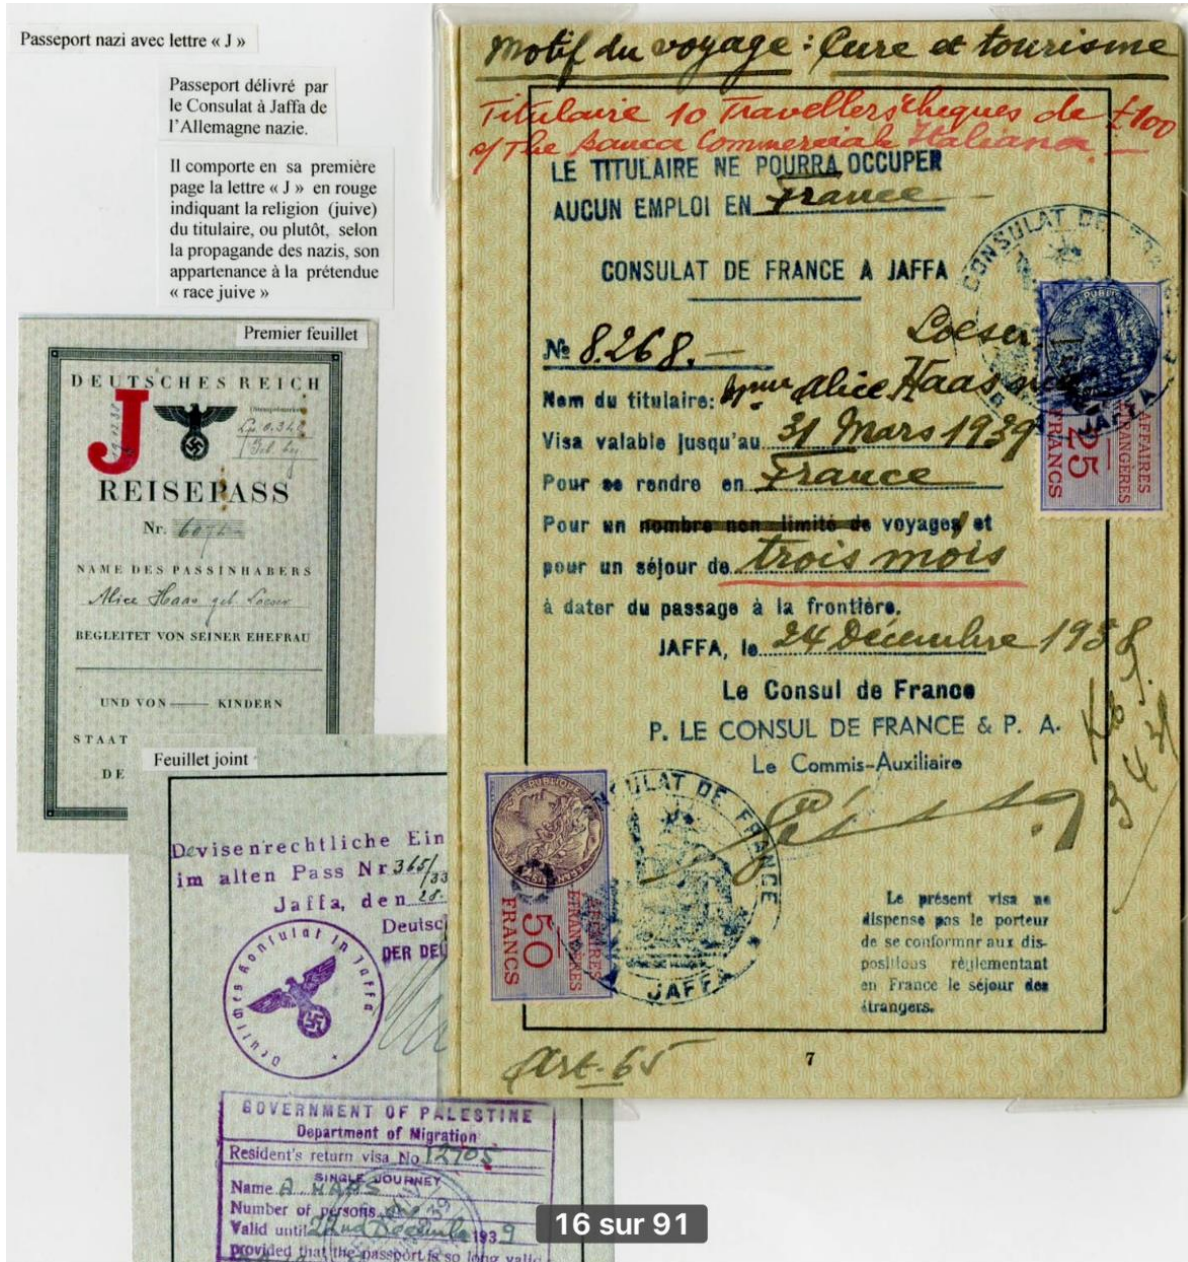 Passeport nazi avec lettre « J »
Passeport délivré par
le Consulat à Jaffa de
l’Allemagne nazie.
Il comporte en sa première
page la lettre « J » en rouge
indiquant la religion (juive)
du titulaire, ou plutôt, selon
la propagande des nazis, son
appartenance à la prétendue
« race juive »
Premier feuillet
DEUTSCHES REICH
J
REISEPASS
Nr.
NAME DES PASSINHABERS
Alice Haas geb. Loeser
BEGLEITET VON SEINER EHEFRAU
UND VON KINDERN
STAAT
DE
Feuillet joint
Devisenrechtliche Ein
im alten Pass Nr 365/33
Jaffa, den 28.
Deutsc
DER DEU
Deutsches Konsulat in Jaffa
GOVERNMENT OF PALESTINE
Department of Migration
Resident's return visa No 12705
SINGLE JOURNEY
Name A HAAS
Number of persons
Valid until 22nd December 1939
provided that the passport is so long valid
Motif du voyage : Cure et tourisme
Titulaire 10 Travellers cheques de £100
s/ The Banca Commerciale Italiana. —
LE TITULAIRE NE POURRA OCCUPER
AUCUN EMPLOI EN France —
CONSULAT DE FRANCE A JAFFA
CONSULAT DE FRANCE
JAFFA
AFFAIRES
ETRANGÈRES
25
FRANCS
№ 8.268. —
Loeser
Nom du titulaire: Mme Alice Haas née
Visa valable jusqu'au 31 Mars 1939
Pour se rendre en France
Pour un nombre non limité de voyages et
pour un séjour de trois mois
à dater du passage à la frontière.
JAFFA, le 24 Décembre 1938
Le Consul de France
P. LE CONSUL DE FRANCE & P. A.
Le Commis-Auxiliaire
CONSULAT DE FRANCE
JAFFA
AFFAIRES
ETRANGÈRES
50
FRANCS
Le présent visa ne
dispense pas le porteur
de se conformer aux dis-
positions réglementant
en France le séjour des
étrangers.
Art. 65
7
16 sur 91